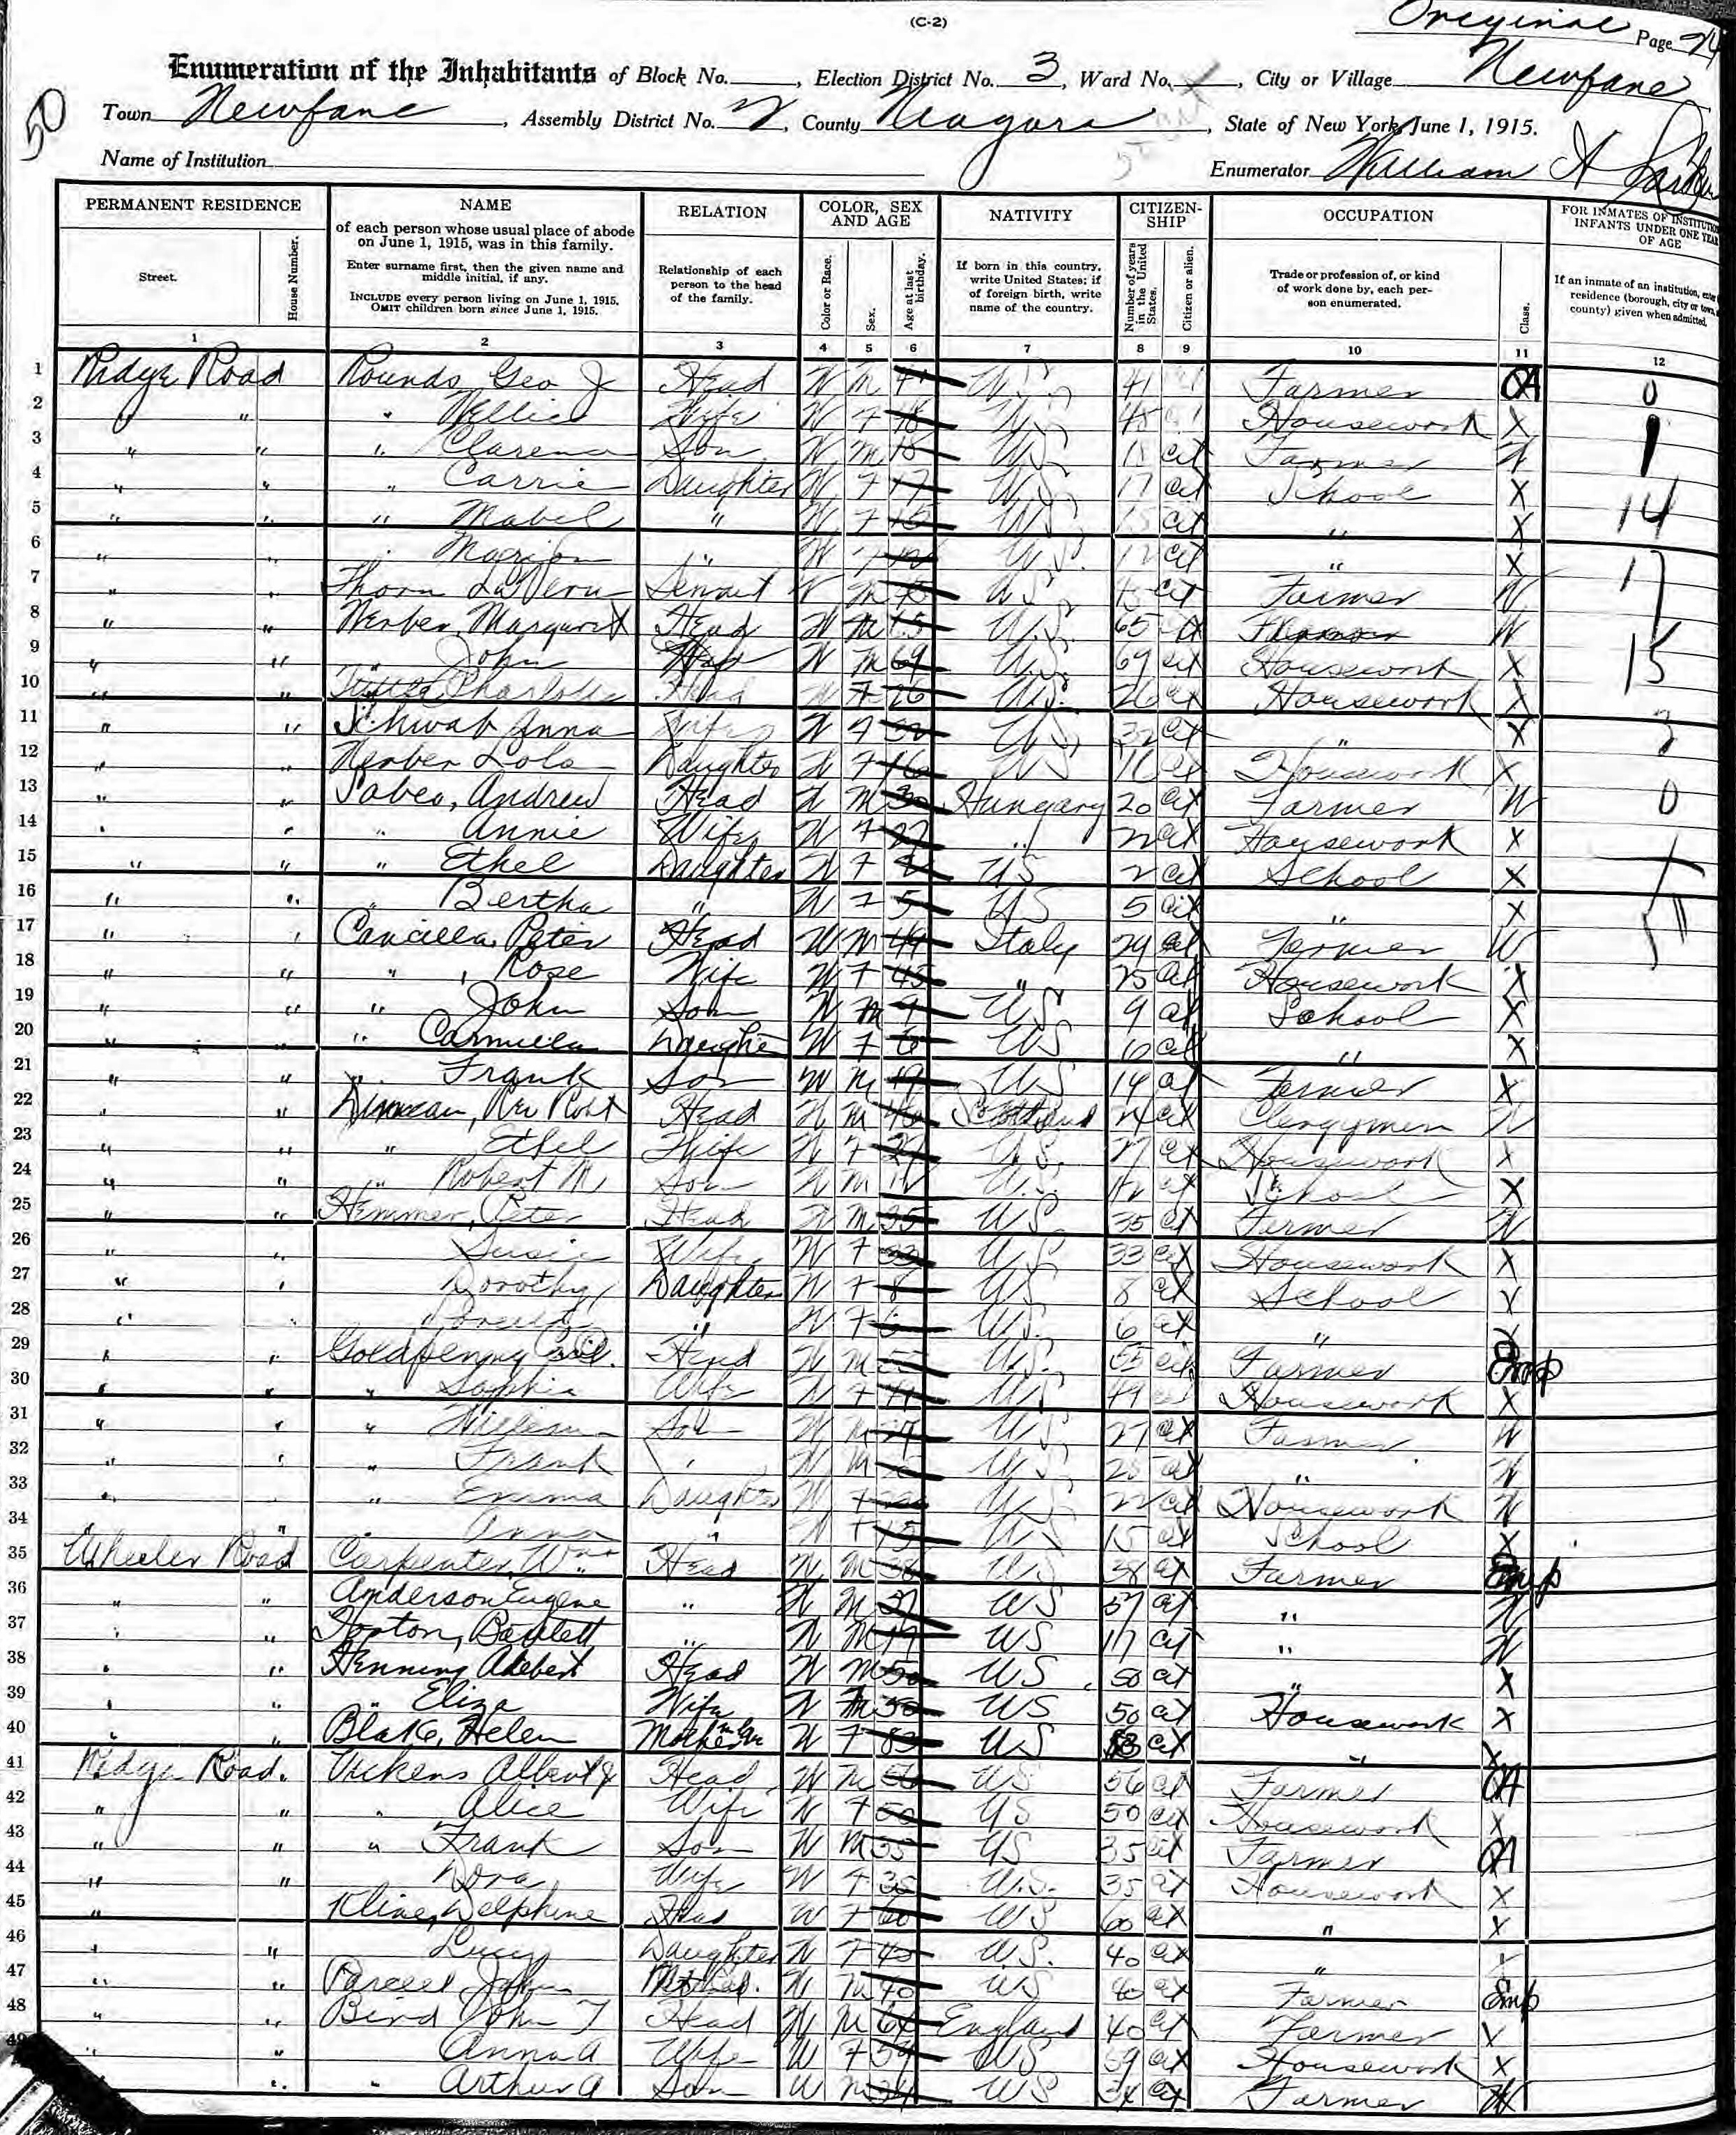 (C-2)
Original Page
Enumeration of the Inhabitants of Block No. , Election District No. 3, Ward No. , City or Village Newfane
50
Town Newfane, Assembly District No. 2, County Niagara, State of New York, June 1, 1915.
Name of Institution Enumerator William A
PERMANENT RESIDENCE NAME RELATION COLOR, SEX AND AGE NATIVITY CITIZEN-SHIP OCCUPATION FOR INMATES OF INSTITUTION INFANTS UNDER ONE YEAR OF AGE
Street. House Number. of each person whose usual place of abode on June 1, 1915, was in this family. Enter surname first, then the given name and middle initial, if any. INCLUDE every person living on June 1, 1915. OMIT children born since June 1, 1915. Relationship of each person to the head of the family. Color or Race. Sex. Age at last birthday. If born in this country, write United States; if of foreign birth, write name of the country. Number of years in the United States. Citizen or alien. Trade or profession of, or kind of work done by, each person enumerated. Class. If an inmate of an institution, residence (borough, city or town, county) given when admitted.
1 2 3 4 5 6 7 8 9 10 11 12
1 Ridge Road Rounds Geo J Head W M 41 U.S. 41 Farmer OA 0
2 " " " Nellie Wife W F 48 US 48 Housework X 1
3 " " " Clarence Son W M 18 US 18 cit Farmer W
4 " " " Carrie Daughter W F 17 US 17 cit School X 14
5 " " " Mabel " W F 15 US 15 cit " X
6 " " " W F 12 U.S. 12 cit " X 17
7 " " Thorn LaVern Servant W M US cit Farmer W
8 " " Werber Margaret Head W M 65 U.S. 65 cit W
9 " " " John W M 69 US 69 cit Housework X 15
10 " " Charlotte Head W F 26 US 26 cit Housework X
11 " " Schwab Anna Wife W F 32 US 32 cit " X 3
12 " " Werber Lola Daughter W F 16 US 16 cit Housework X
13 " " Sabeo, Andrew Head W M 30 Hungary 20 cit Farmer W 0
14 " " " Annie Wife W F 27 " cit Housework X
15 " " " Ethel Daughter W F US cit School X
16 " " " Bertha " W F 5 US 5 cit " X
17 " " Cancilla, Peter Head W M 49 Italy 29 al Farmer W
18 " " " Rose Wife W F 45 " 25 al Housework X
19 " " " John Son W M 9 US 9 al School X
20 " " " Carmilla Daughter W F 6 US 6 cit " X
21 " " " Frank Son W M 19 US 19 al Farmer X
22 " " Rev Robt Head W M 40 Scotland cit Clergymen W
23 " " " Ethel Wife W F 27 U.S. 27 cit Housework X
24 " " " Robert M. Son W M 12 U.S. 12 cit School X
25 " " Hemmer, Peter Head W M 35 US 35 cit Farmer W
26 " " Susie Wife W F 33 US 33 cit Housework X
27 " " Dorothy Daughter W F 8 US 8 cit School X
28 " " " W F 6 US. 6 cit "
29 " " Goldpenny Head W M 55 U.S. 55 cit Farmer Emp
30 " " " Sophia Wife W F 49 US 49 Housework X
31 " " " William Son W M 27 US 27 cit Farmer W
32 " " " Frank " W M US 25 cit " W
33 " " " Emma Daughter W F 22 US 22 cit Housework W
34 " " " Anna " W F 15 US 15 cit School X
35 Wheeler Road Carpenter, Wm Head W M 38 US 38 cit Farmer Emp
36 " " Anderson Eugene " W M 37 US 37 cit " W
37 " " Bartlett " W M 17 US 17 cit " W
38 " " Henning Adebert Head W M 50 US 50 cit " X
39 " " " Eliza Wife W 50 US 50 cit Housework X
40 " " Blake, Helen W F 83 US 83 cit " X
41 Ridge Road. Vickens Albert J Head W M 56 US 56 cit Farmer OA
42 " " " Alice Wife W F 50 US 50 cit Housework X
43 " " " Frank Son W M 35 US 35 cit Farmer OA
44 " " Dora Wife W F 35 U.S. 35 cit Housework X
45 " Kline, Delphine Head W F 60 US 60 cit " X
46 " " Lucy Daughter W F 40 U.S. 40 cit "
47 " " John W M 40 US 40 cit Farmer Emp
48 " " Bird John T Head W M 64 England 40 cit Farmer X
49 " " Anna A Wife W F 59 US 59 cit Housework X
" " Arthur A Son W M 34 US 34 cit Farmer W